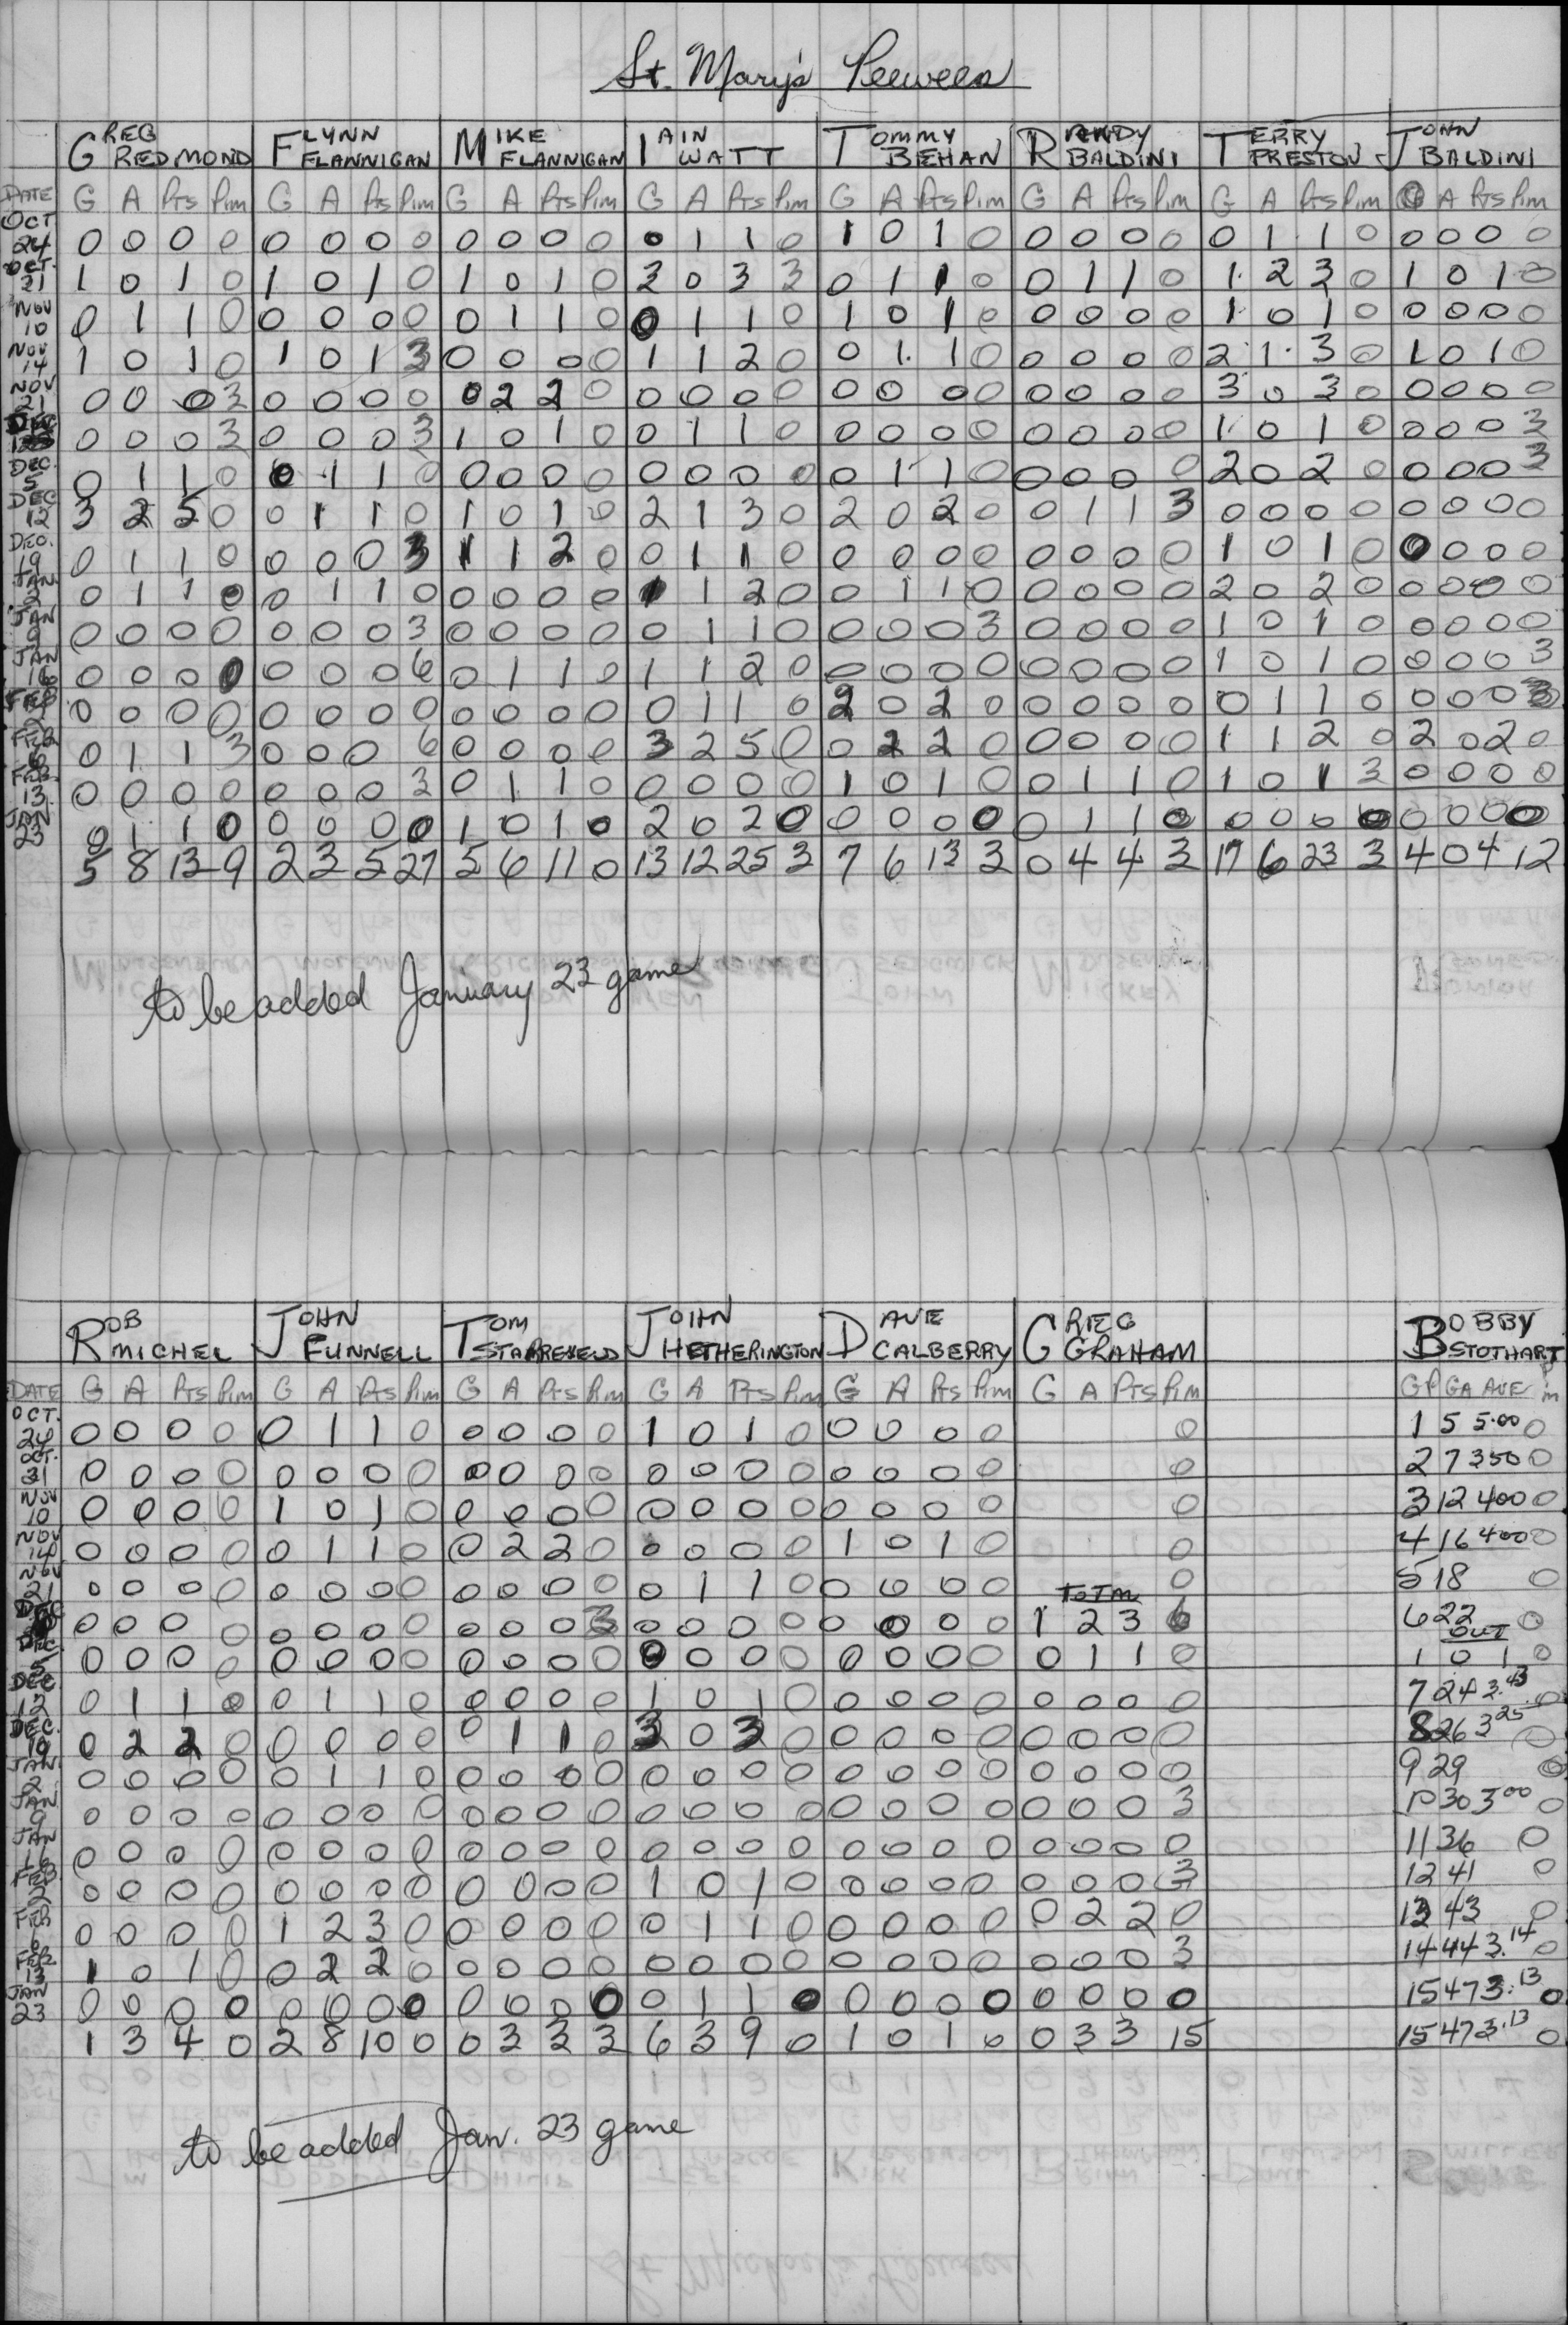 St. Mary's Peewees
GREG REDMOND FLYNN FLANNIGAN MIKE FLANNIGAN IAIN WATT TOMMY BEHAN RANDY BALDINI TERRY PRESTON JOHN BALDINI
DATE G A Pts Pim G A Pts Pim G A Pts Pim G A Pts Pim G A Pts Pim G A Pts Pim G A Pts Pim G A Pts Pim
OCT 24 0 0 0 0 0 0 0 0 0 0 0 0 0 1 1 0 1 0 1 0 0 0 0 0 0 1 1 0 0 0 0 0
OCT. 31 1 0 1 0 1 0 1 0 1 0 1 0 3 0 3 3 0 1 1 0 0 1 1 0 1 2 3 0 1 0 1 0
NOV 10 0 1 1 0 0 0 0 0 0 1 1 0 0 1 1 0 1 0 1 0 0 0 0 0 1 0 1 0 0 0 0 0
NOV 14 1 0 1 0 1 0 1 3 0 0 0 0 1 1 2 0 0 1 1 0 0 0 0 0 2 1 3 0 1 0 1 0
NOV 21 0 0 0 3 0 0 0 0 0 2 2 0 0 0 0 0 0 0 0 0 0 0 0 0 3 0 3 0 0 0 0 0
DEC 0 0 0 3 0 0 0 3 1 0 1 0 0 1 1 0 0 0 0 0 0 0 0 0 1 0 1 0 0 0 0 3
DEC. 5 0 1 1 0 0 1 1 0 0 0 0 0 0 0 0 0 0 1 1 0 0 0 0 0 2 0 2 0 0 0 0 3
DEC 12 3 2 5 0 0 1 1 0 1 0 1 0 2 1 3 0 2 0 2 0 0 1 1 3 0 0 0 0 0 0 0 0
DEC. 19 0 1 1 0 0 0 0 3 1 1 2 0 0 1 1 0 0 0 0 0 0 0 0 0 1 0 1 0 0 0 0 0
JAN. 2 0 1 1 0 0 1 1 0 0 0 0 0 1 1 2 0 0 1 1 0 0 0 0 0 2 0 2 0 0 0 0 0
JAN 9 0 0 0 0 0 0 0 3 0 0 0 0 0 1 1 0 0 0 0 3 0 0 0 0 1 0 1 0 0 0 0 0
JAN 16 0 0 0 0 0 0 0 6 0 1 1 0 1 1 2 0 0 0 0 0 0 0 0 0 1 0 1 0 0 0 0 3
FEB 2 0 0 0 0 0 0 0 0 0 0 0 0 0 1 1 0 2 0 2 0 0 0 0 0 0 1 1 0 0 0 0 3
FEB 6 0 1 1 3 0 0 0 6 0 0 0 0 3 2 5 0 0 2 2 0 0 0 0 0 1 1 2 0 2 0 2 0
FEB. 13 0 0 0 0 0 0 0 3 0 1 1 0 0 0 0 0 1 0 1 0 0 1 1 0 1 0 1 3 0 0 0 0
JAN 23 0 1 1 0 0 0 0 0 1 0 1 0 2 0 2 0 0 0 0 0 0 1 1 0 0 0 0 0 0 0 0 0
5 8 13 9 2 3 5 27 5 6 11 0 13 12 25 3 7 6 13 3 0 4 4 3 17 6 23 3 4 0 4 12
to be added January 23 game
ROB MICHEL JOHN FUNNELL TOM STARREVELD JOHN HETHERINGTON DAVE CALBERRY GREG GRAHAM BOBBY STOTHART
DATE G A Pts Pim G A Pts Pim G A Pts Pim G A Pts Pim G A Pts Pim G A Pts Pim GP GA AVE Pim
OCT. 24 0 0 0 0 0 1 1 0 0 0 0 0 1 0 1 0 0 0 0 0 0 1 5 5.00 0
OCT. 31 0 0 0 0 0 0 0 0 0 0 0 0 0 0 0 0 0 0 0 0 0 2 7 350 0
NOV 10 0 0 0 0 1 0 1 0 0 0 0 0 0 0 0 0 0 0 0 0 0 3 12 400 0
NOV 14 0 0 0 0 0 1 1 0 0 2 2 0 0 0 0 0 1 0 1 0 0 4 16 400 0
NOV 21 0 0 0 0 0 0 0 0 0 0 0 0 0 1 1 0 0 0 0 0 0 5 18 0
TOTAL
DEC 0 0 0 0 0 0 0 0 0 0 0 3 0 0 0 0 0 0 0 0 1 2 3 6 6 22 0
OUT
DEC. 5 0 0 0 0 0 0 0 0 0 0 0 0 0 0 0 0 0 0 0 0 0 1 1 0 1 0 1 0
DEC 12 0 1 1 0 0 1 1 0 0 0 0 0 1 0 1 0 0 0 0 0 0 0 0 0 7 24 3.43 0
DEC. 19 0 2 2 0 0 0 0 0 0 1 1 0 3 0 3 0 0 0 0 0 0 0 0 0 8 26 3 25 0
JAN. 2 0 0 0 0 0 1 1 0 0 0 0 0 0 0 0 0 0 0 0 0 0 0 0 0 9 29 0
JAN 9 0 0 0 0 0 0 0 0 0 0 0 0 0 0 0 0 0 0 0 0 0 0 0 3 10 30 3 00 0
JAN 16 0 0 0 0 0 0 0 0 0 0 0 0 0 0 0 0 0 0 0 0 0 0 0 0 11 36 0
FEB 2 0 0 0 0 0 0 0 0 0 0 0 0 1 0 1 0 0 0 0 0 0 0 0 3 12 41 0
FEB 6 0 0 0 0 1 2 3 0 0 0 0 0 0 1 1 0 0 0 0 0 0 2 2 0 13 43 0
FEB. 13 1 0 1 0 0 2 2 0 0 0 0 0 0 0 0 0 0 0 0 0 0 0 0 3 14 44 3.14 0
JAN 23 0 0 0 0 0 0 0 0 0 0 0 0 0 1 1 0 0 0 0 0 0 0 0 0 15 47 3.13 0
1 3 4 0 2 8 10 0 0 3 3 3 6 3 9 0 1 0 1 0 0 3 3 15 15 47 3.13 0
to be added Jan. 23 game